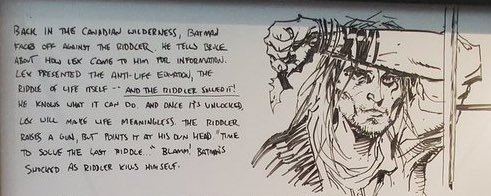 BACK IN THE CANADIAN WILDERNESS, BATMAN
FACES OFF AGAINST THE RIDDLER. HE TELLS BRUCE
ABOUT HOW LEX COME TO HIM FOR INFORMATION.
LEX PRESENTED THE ANTI-LIFE EQUATION, THE
RIDDLE OF LIFE ITSELF -- AND THE RIDDLER SOLVED IT!
HE KNOWS WHAT IT CAN DO. AND ONCE IT'S UNLOCKED,
LEX WILL MAKE LIFE MEANINGLESS. THE RIDDLER
RAISES A GUN, BUT POINTS IT AT HIS OWN HEAD "TIME
TO SOLVE THE LAST RIDDLE..." BLAMM! BATMAN'S
SHOCKED AS RIDDLER KILLS HIMSELF.